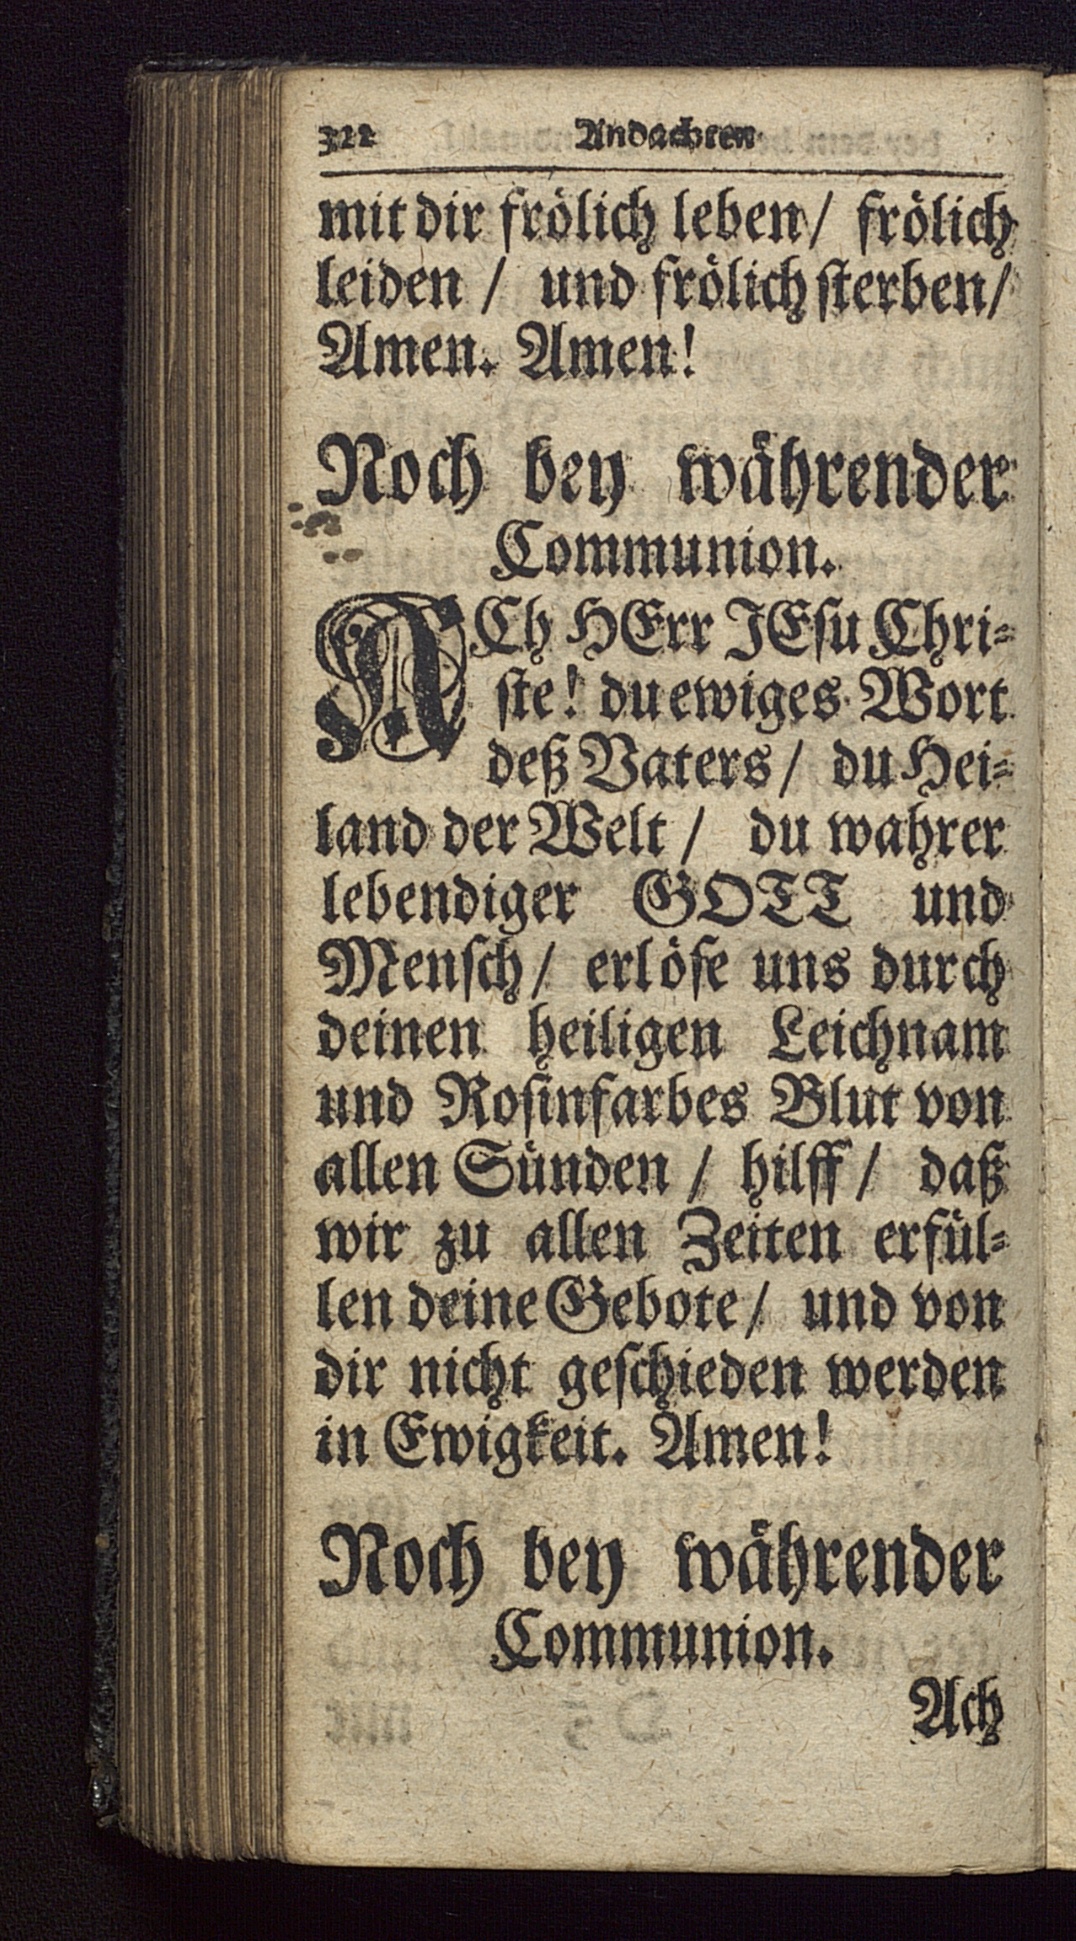 322 Andachten
mit dir frölich leben / frölich
leiden / und frölich sterben /
Amen. Amen!
Noch bey währender
Communion.
ACh HErr JEsu Chri-
ste! du ewiges Wort
deß Vaters / du Hei-
land der Welt / du wahrer
lebendiger GOTT und
Mensch / erlöse uns durch
deinen heiligen Leichnam
und Rosinfarbes Blut von
allen Sünden / hilff / daß
wir zu allen Zeiten erfül-
len deine Gebote / und von
dir nicht geschieden werden
in Ewigkeit. Amen!
Noch bey währender
Communion.
Ach